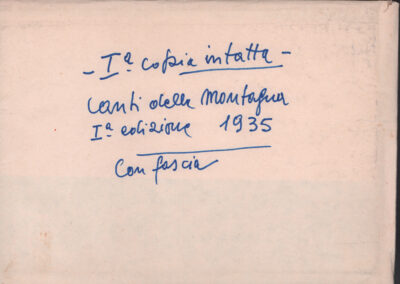 - Iª copia intatta -
Canti della Montagna
Iª edizione 1935
Con fascia